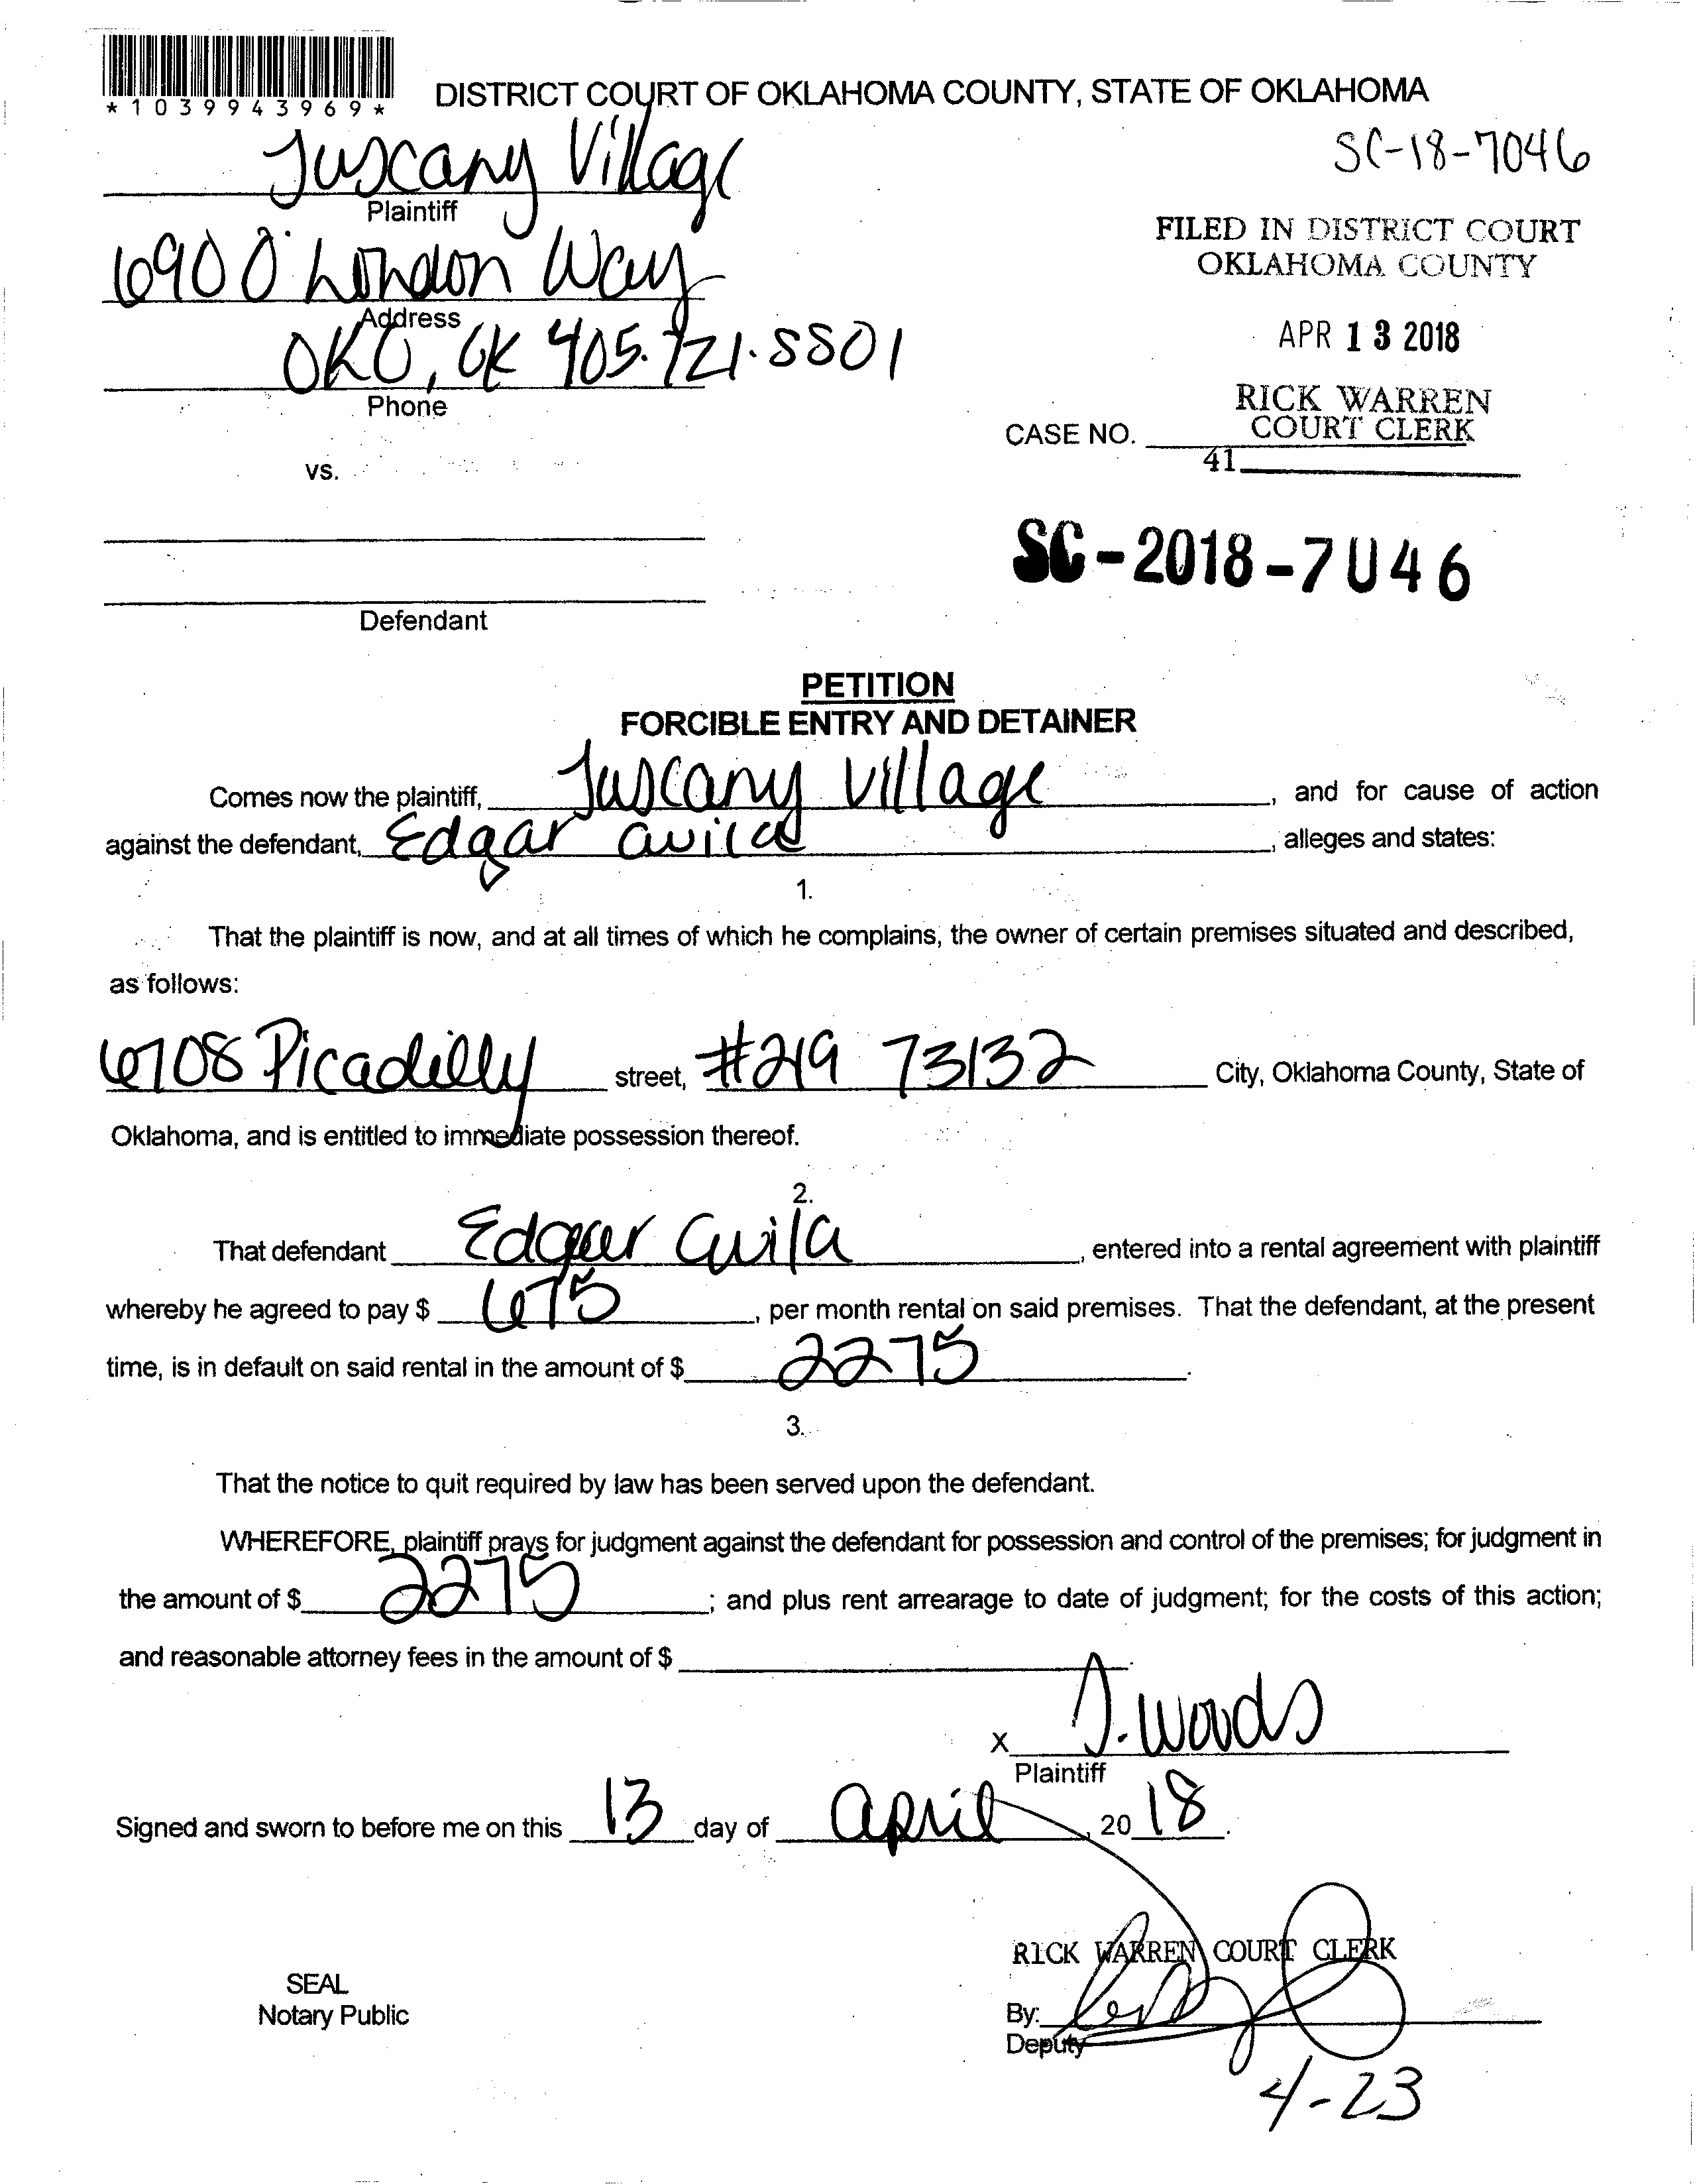 *1039943969*
DISTRICT COURT OF OKLAHOMA COUNTY, STATE OF OKLAHOMA
SC-18-7046
Tuscany Village
Plaintiff
FILED IN DISTRICT COURT
OKLAHOMA COUNTY
6900 London Way
Address
APR 13 2018
OKC, OK 405.721.5501
Phone
RICK WARREN
COURT CLERK
CASE NO.
41
vs.
SC-2018-7046
Defendant
PETITION
FORCIBLE ENTRY AND DETAINER
Comes now the plaintiff, Tuscany Village, and for cause of action
against the defendant, Edgar avila, alleges and states:
1.
That the plaintiff is now, and at all times of which he complains, the owner of certain premises situated and described,
as follows:
6708 Picadilly street, #219 73132 City, Oklahoma County, State of
Oklahoma, and is entitled to immediate possession thereof.
2.
That defendant Edgar Avila, entered into a rental agreement with plaintiff
whereby he agreed to pay $ 675, per month rental on said premises. That the defendant, at the present
time, is in default on said rental in the amount of $ 2275.
3.
That the notice to quit required by law has been served upon the defendant.
WHEREFORE, plaintiff prays for judgment against the defendant for possession and control of the premises; for judgment in
the amount of $ 2275; and plus rent arrearage to date of judgment; for the costs of this action;
and reasonable attorney fees in the amount of $
X J. Woods
Plaintiff
Signed and sworn to before me on this 13 day of april, 20 18.
RICK WARREN COURT CLERK
SEAL
Notary Public
By:
Deputy
4-23